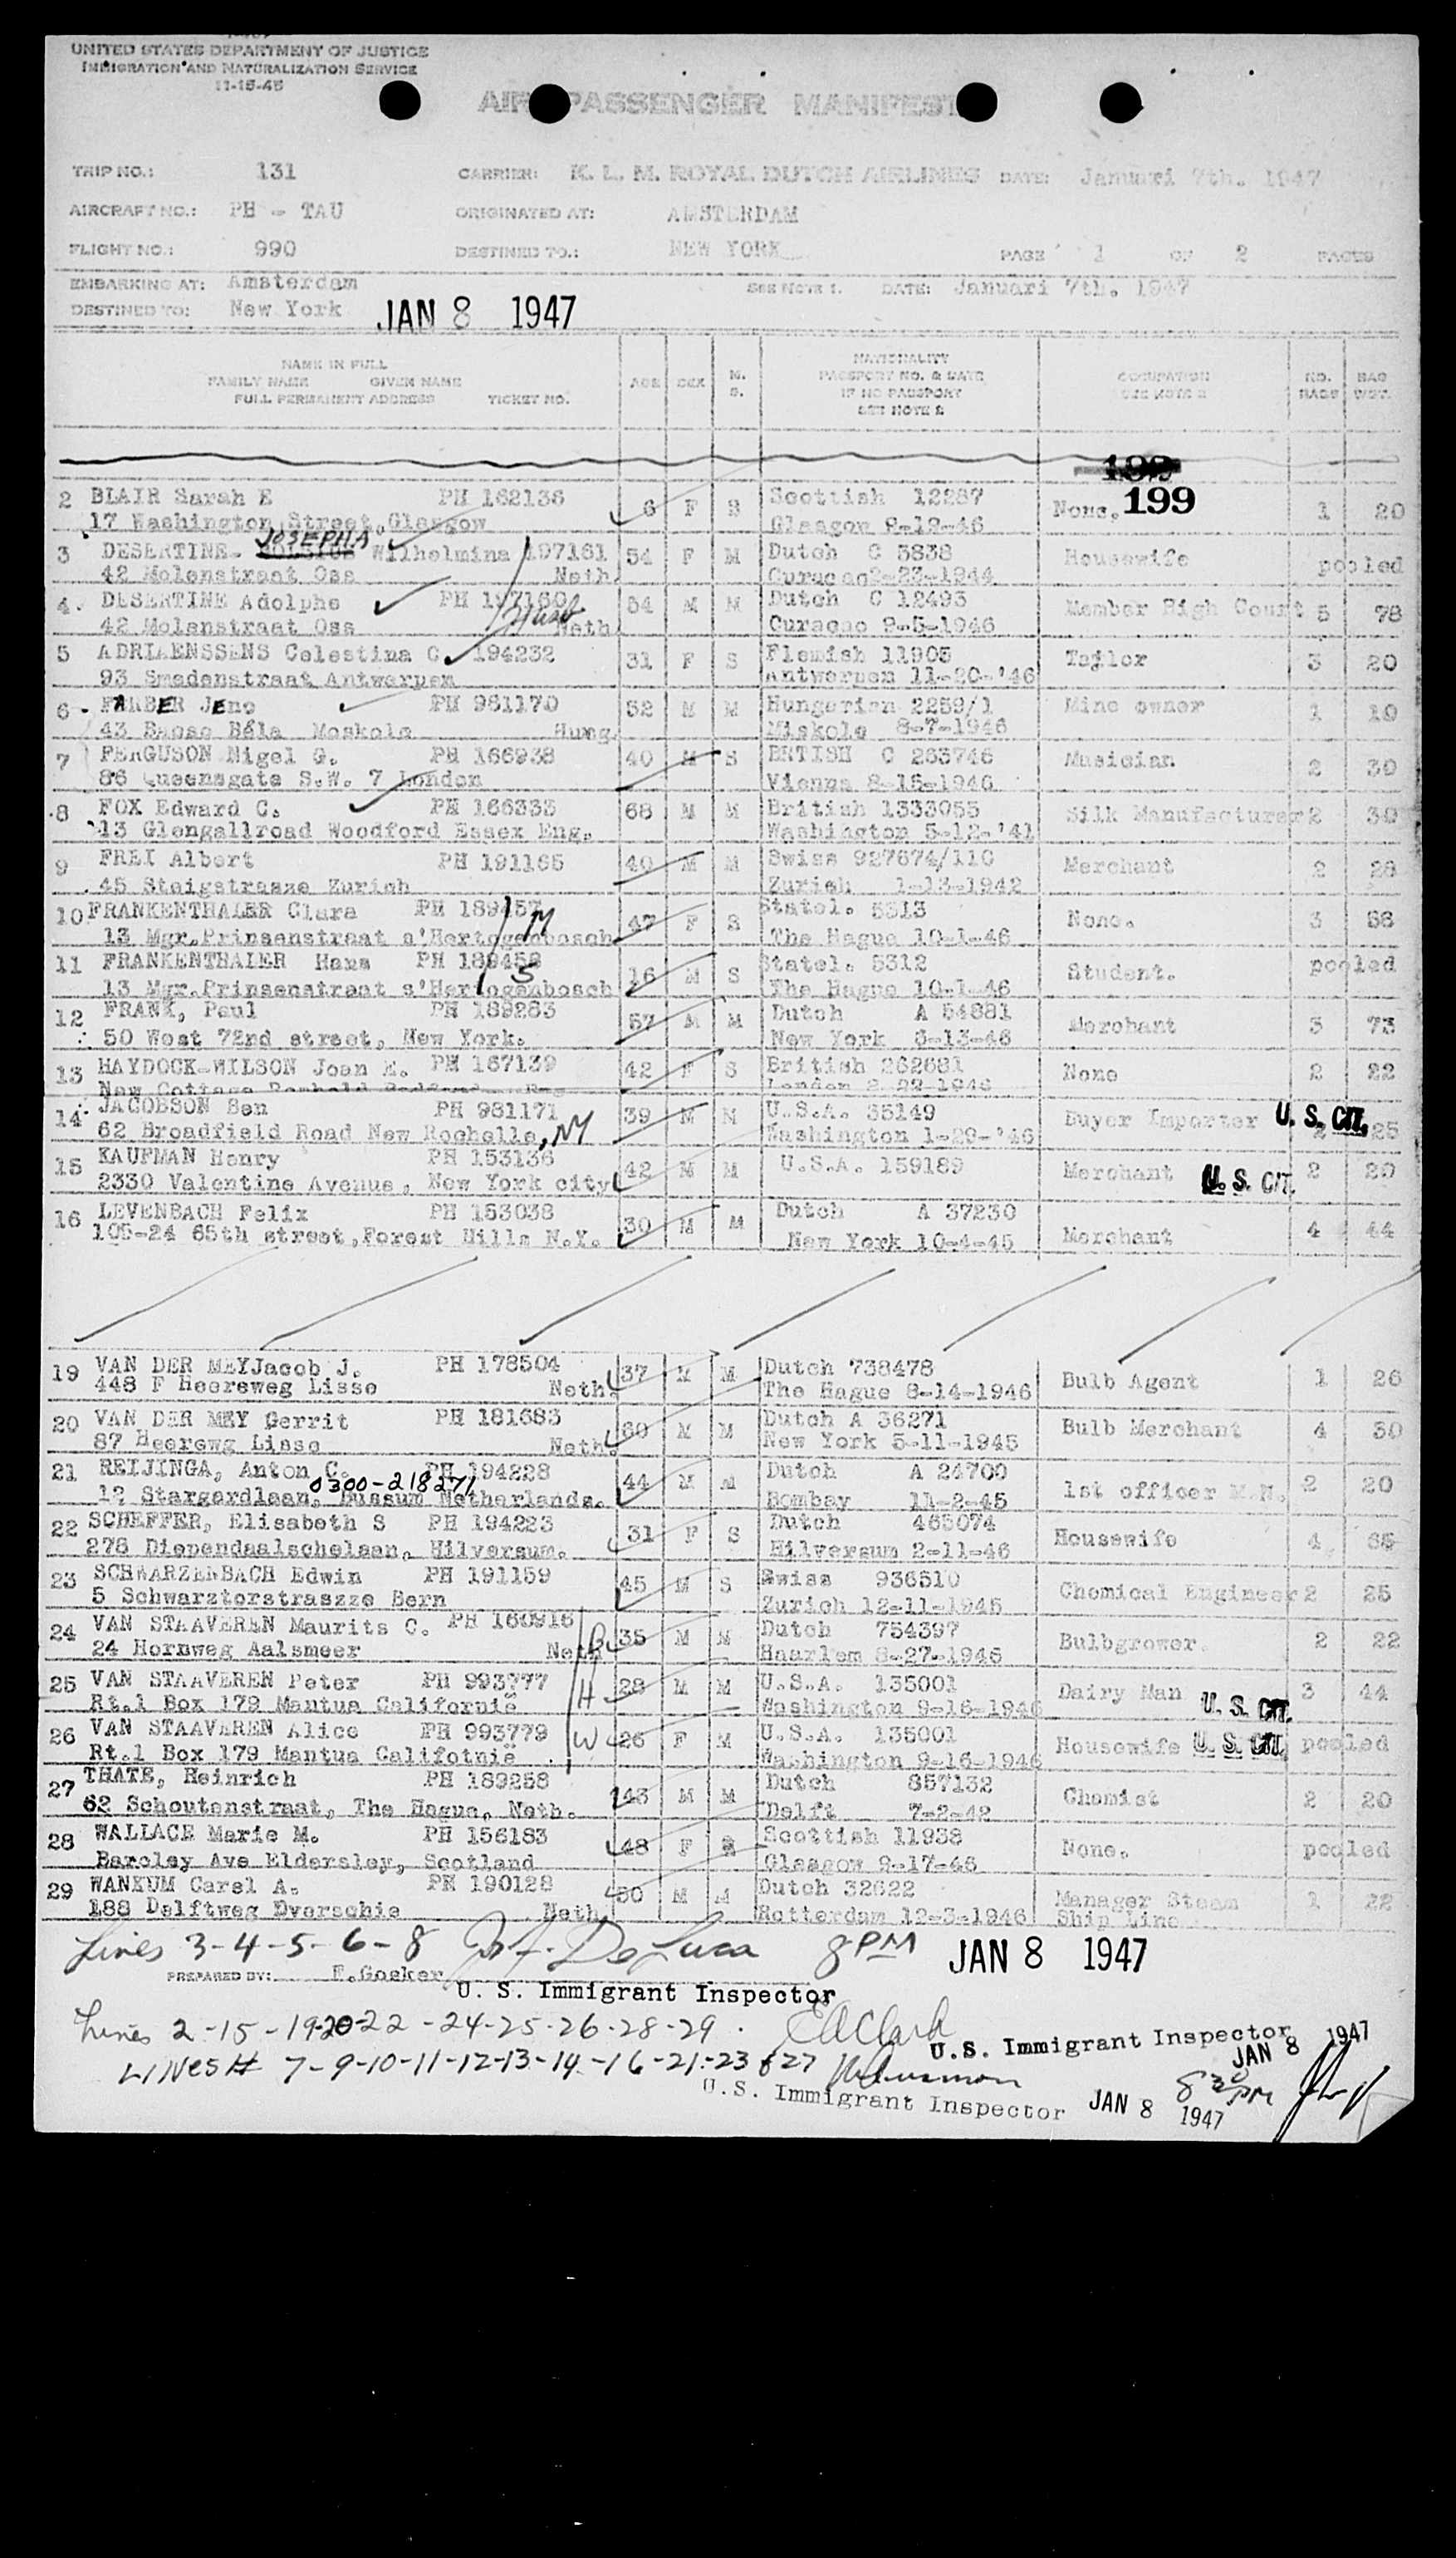 UNITED STATES DEPARTMENT OF JUSTICE
IMMIGRATION AND NATURALIZATION SERVICE
11-15-45
AIR PASSENGER MANIFEST
TRIP NO.: 131 CARRIER: K. L. M. ROYAL DUTCH AIRLINES DATE: Januari 7th. 1947
AIRCRAFT NO.: PH - TAU ORIGINATED AT: AMSTERDAM
FLIGHT NO.: 990 DESTINED TO.: NEW YORK PAGE 1 OF 2 PAGES
EMBARKING AT: Amsterdam SEE NOTE 1. DATE: Januari 7th. 1947
DESTINED TO: New York JAN 8 1947
NAME IN FULL
FAMILY NAME GIVEN NAME
FULL PERMANENT ADDRESS TICKET NO.
AGE SEX M. S.
NATIONALITY
PASSPORT NO. & DATE
IF NO PASSPORT
SEE NOTE 2
OCCUPATION
SEE NOTE 2
NO. BAGS
BAG WGT.
199
2 BLAIR Sarah E PH 162136 6 F S Scottish 12287 None. 1 20
17 Washington Street, Glasgow Glasgow 9-19-46
JOSEPHA
3 DESERTINE- Wilhelmina 197161 54 F M Dutch C 5838 Housewife pooled
42 Molenstraat Oss Neth. Curacao 2-23-1944
4. DESERTINE Adolphe PH 197160 54 M M Dutch C 12493 Member High Court 5 78
42 Molenstraat Oss Neth Curacao 9-5-1946
5 ADRIAENSSENS Celestina C. 194232 31 F S Flemish 11905 Tailor 3 20
93 Smedenstraat Antwerpen Antwerpen 11-20-'46
6 - FARBER Jeno PH 981170 52 M M Hungarian 2259/1 Mine owner 1 19
43 Bacso Béla Moskolc Hung. Miskolc 8-7-1946
7 FERGUSON Nigel G. PH 166938 40 M S BRTISH C 263746 Musician 2 30
86 Queensgate S.W. 7 London Vienna 8-15-1946
8 FOX Edward C. PH 166333 68 M M British 1333055 Silk Manufacturer 2 30
13 Glengallroad Woodford Essex Eng. Washington 5-12-'41
9 FREI Albert PH 191165 40 M M Swiss 927674/110 Merchant 2 28
45 Steigstrasze Zurich Zurich 1-13-1942
10 FRANKENTHALER Clara PH 189457 M 47 F S Statel. 5313 None. 3 88
13 Mgr.Prinsenstraat s'Hertogenbosch The Hague 10-1-46
11 FRANKENTHALER Hans PH 189458 S 16 M S Statel. 5312 Student. pooled
13 Mgr.Prinsenstraat s'Hertogenbosch The Hague 10-1-46
12 FRANK, Paul PH 189283 57 M M Dutch A 54881 Merchant 3 73
50 West 72nd street, New York. New York 6-13-46
13 HAYDOCK-WILSON Joan E. PH 167139 42 F S British 262681 None 2 22
New Cottage London 2-22-1946
14 JACOBSON Ben PH 981171 39 M M U.S.A. 35149 Buyer Importer U. S. CIT. 2 25
62 Broadfield Road New Rochelle, NY Washington 1-29-'46
15 KAUFMAN Henry PH 153136 42 M M U.S.A. 159189 Merchant U. S. CIT. 2 20
2330 Valentine Avenue, New York city
16 LEVENBACH Felix PH 153038 30 M M Dutch A 37230 Merchant 4 44
105-24 65th street, Forest Hills N.Y. New York 10-4-45
19 VAN DER MEYJacob J. PH 178504 37 M M Dutch 738478 Bulb Agent 1 26
448 F Heereweg Lisse Neth. The Hague 8-14-1946
20 VAN DER MEY Gerrit PH 181683 60 M M Dutch A 36271 Bulb Merchant 4 30
87 Heerewg Lisse Neth. New York 5-11-1945
21 REIJINGA, Anton C. PH 194228 44 M M Dutch A 24700 1st officer M.N. 2 20
0300-218271
12 Stargardlaan, Bussum Netherlands. Bombay 11-2-45
22 SCHEFFER, Elisabeth S PH 194223 31 F S Dutch 465074 Housewife 4
278 Diependaalschelaan, Hilversum. Hilversum 2-11-46
23 SCHWARZENBACH Edwin PH 191159 45 M S Swiss 936510 Chemical Engineer 2 25
5 Schwarztorstraszze Bern Zurich 12-11-1945
24 VAN STAAVEREN Maurits C. PH 160916 B 35 M M Dutch 754397 Bulbgrower. 2 22
24 Hornweg Aalsmeer Neth Haarlem 8-27-1945
25 VAN STAAVEREN Peter PH 993777 H 28 M M U.S.A. 135001 Dairy Man U. S. CIT. 3 44
Rt.1 Box 179 Mantua Californië Washington 9-16-1946
26 VAN STAAVEREN Alice PH 993779 W 26 F M U.S.A. 135001 Housewife U. S. CIT. pooled
Rt.1 Box 179 Mantua Califotnië Washington 9-16-1946
27 THATE, Heinrich PH 189258 46 M M Dutch 857132 Chemist 2 20
62 Schoutenstraat, The Hague, Neth. Delft 7-2-42
28 WALLACE Marie M. PH 156183 48 F S Scottish 11938 None. pooled
Barcley Ave Eldersley, Scotland Glasgow 9-17-46
29 WANKUM Carel A. PH 190128 50 M M Dutch 32622 Manager Steam 1 22
188 Delftweg Overschie Neth. Rotterdam 12-3-1946 Ship Line
Lines 3-4-5-6-8 De Luca 8 PM JAN 8 1947
PREPARED BY: F.Gosker
U. S. Immigrant Inspector
Lines 2-15-19-20-22-24-25-26-28-29. EA Clark
U.S. Immigrant Inspector
JAN 8 1947
LINES # 7-9-10-11-12-13-14-16-21-23 & 27
U.S. Immigrant Inspector JAN 8 1947 8 30 PM